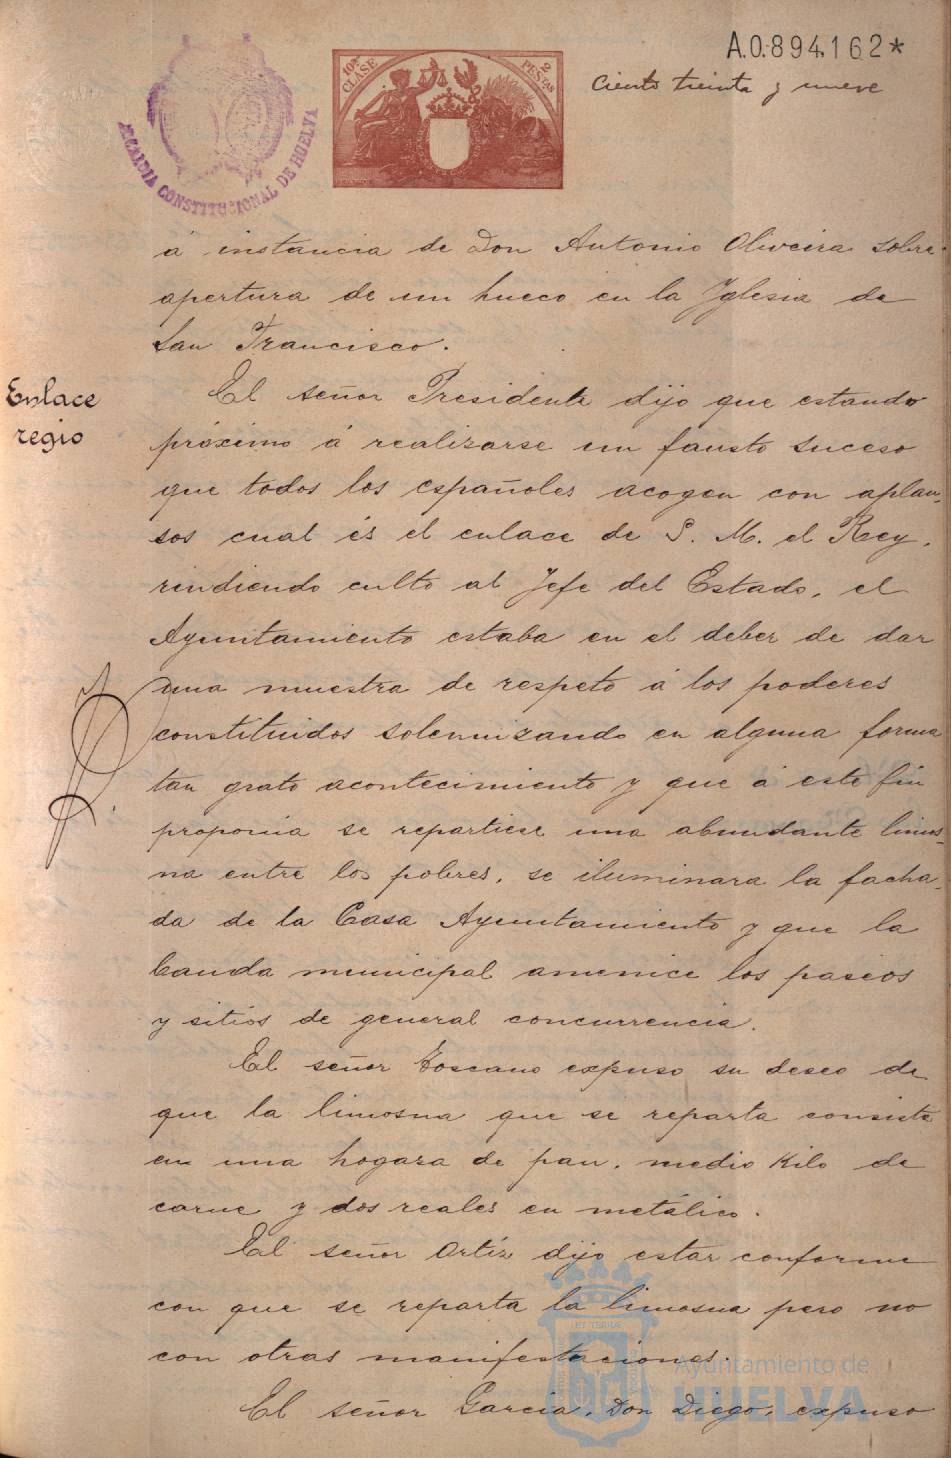 A.0.894,162*
Ciento treinta y nueve
10ª CLASE
2 PESTAS
ALCALDIA CONSTITUCIONAL DE HUELVA
á instancia de Don Antonio Oliveira sobre
apertura de un hueco en la Yglesia de
San Francisco.
Enlace
regio
El señor Presidente dijo que estando
próximo á realizarse un fausto suceso
que todos los españoles acogen con aplau-
sos cual és el enlace de S. M. el Rey,
rindiendo culto al Jefe del Estado, el
Ayuntamiento estaba en el deber de dar
una muestra de respeto á los poderes
constituidos solemnizando en alguna forma
tan grato acontecimiento y que á este fin
proponia se repartiese una abundante limos-
na entre los pobres, se iluminara la facha-
da de la Casa Ayuntamiento y que la
banda municipal amenice los paseos
y sitios de general concurrencia.
El señor Toscano expuso su deseo de
que la limosna que se reparta consista
en una hogaza de pan, medio Kilo de
carne y dos reales en metálico.
El señor Ortíz dijo estar conforme
con que se reparta la limosna pero no
con otras manifestaciones.
El señor Garcia, Don Diego, expuso
Ayuntamiento de
HUELVA